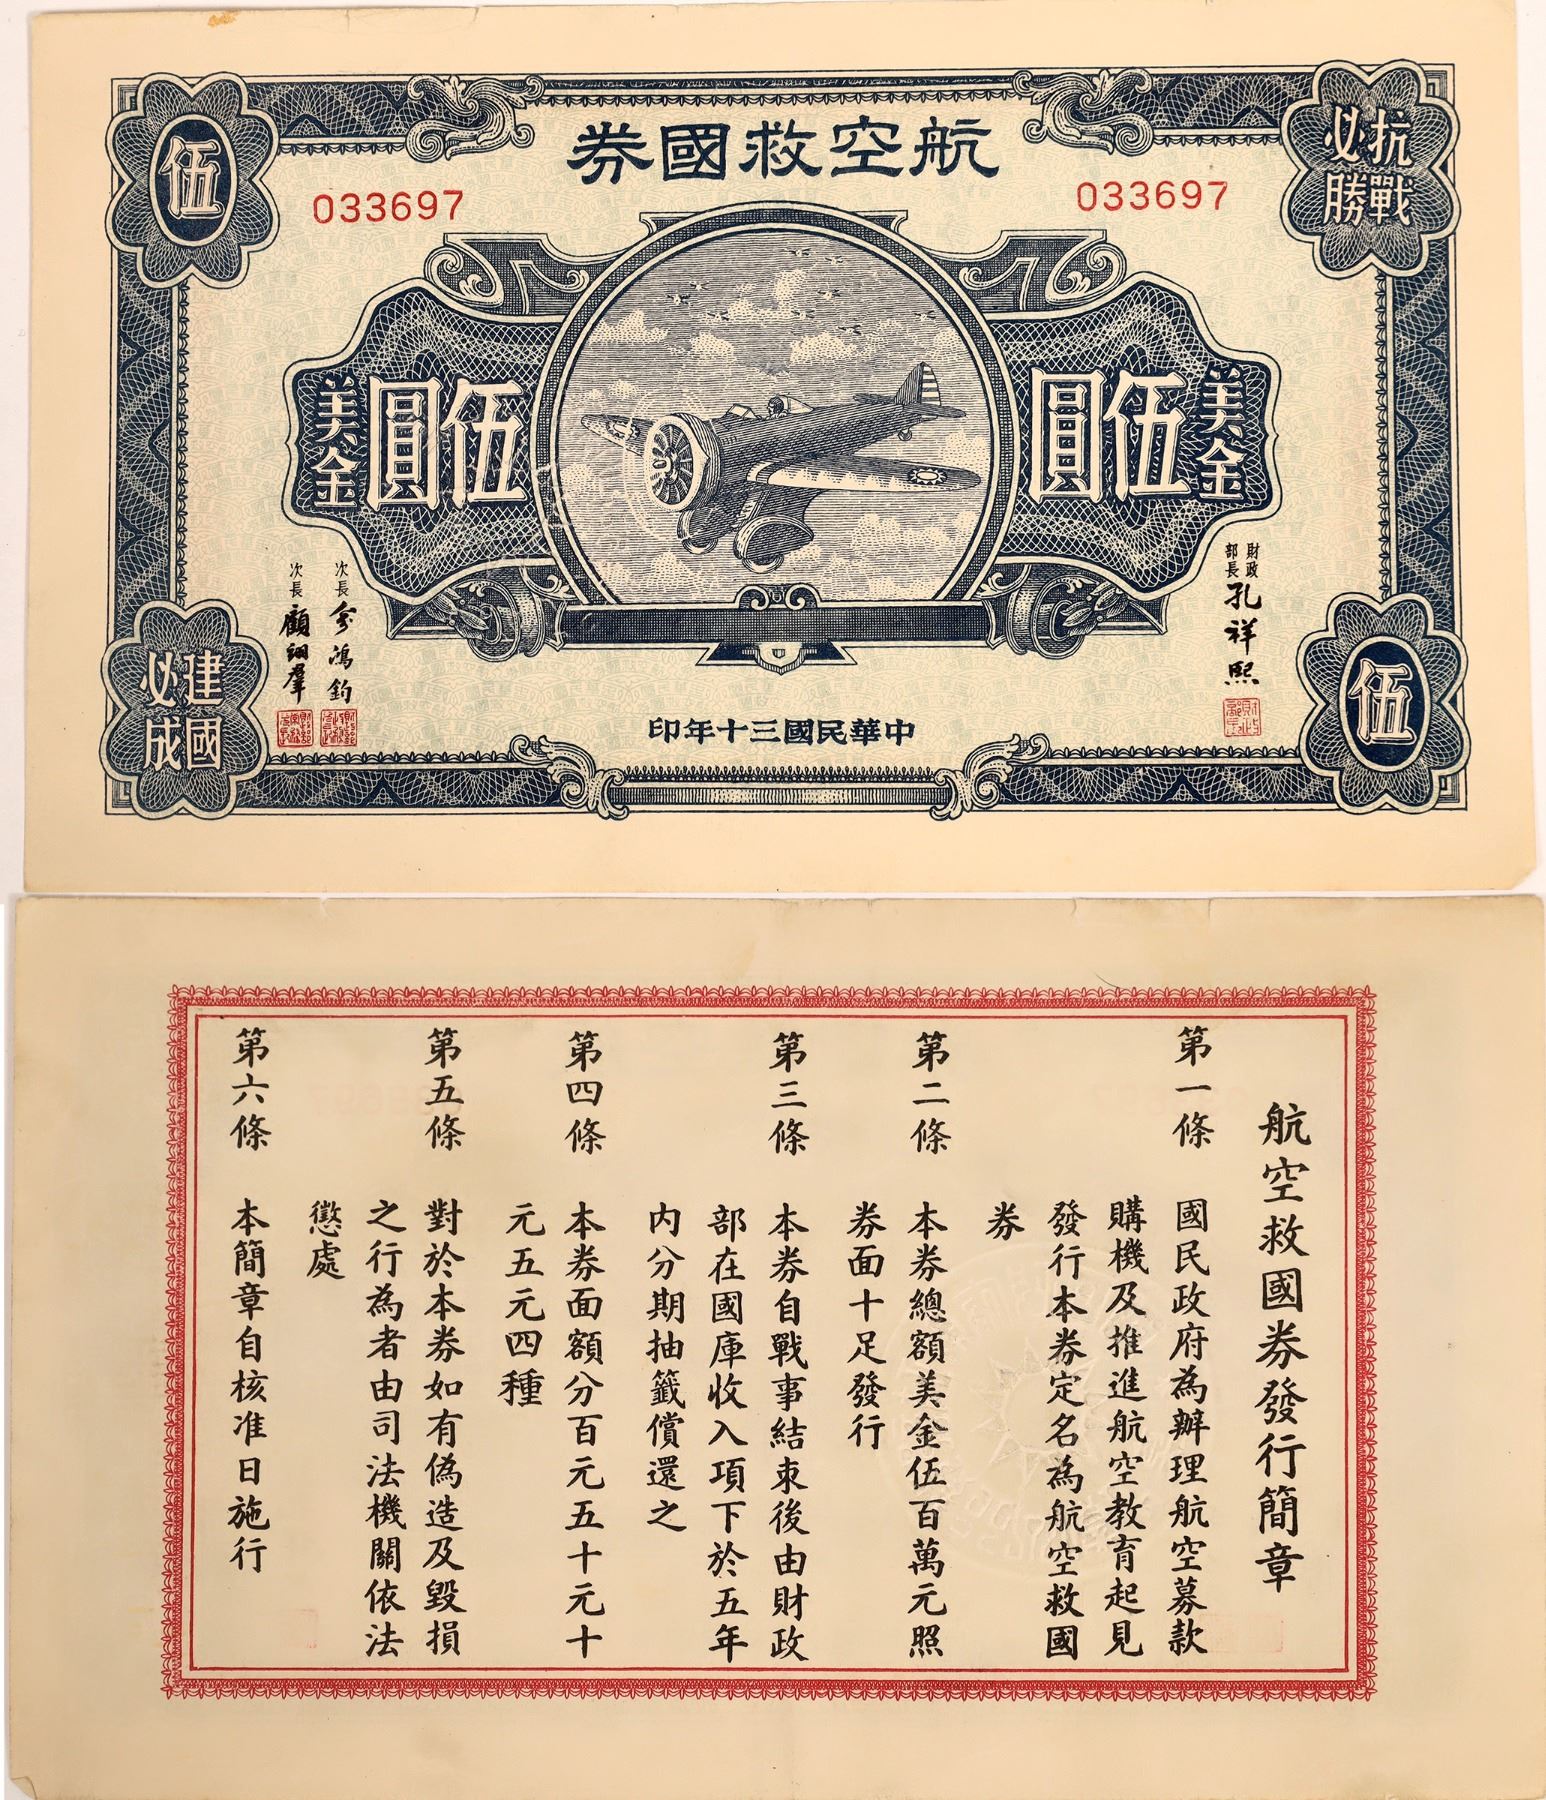 航空救國券
033697
033697
伍
抗戰
必勝
美金
伍圓
美金
伍圓
財政
部長
孔祥熙
次長 俞鴻鈞
次長 顧翊羣
建國
必成
伍
中華民國三十年印
航空救國券發行簡章
第一條 國民政府為辦理航空募款
購機及推進航空教育起見
發行本券定名為航空救國
券
第二條 本券總額美金伍百萬元照
券面十足發行
第三條 本券自戰事結束後由財政
部在國庫收入項下於五年
内分期抽籤償還之
第四條 本券面額分百元五十元十
元五元四種
第五條 對於本券如有偽造及毀損
之行為者由司法機關依法
懲處
第六條 本簡章自核准日施行